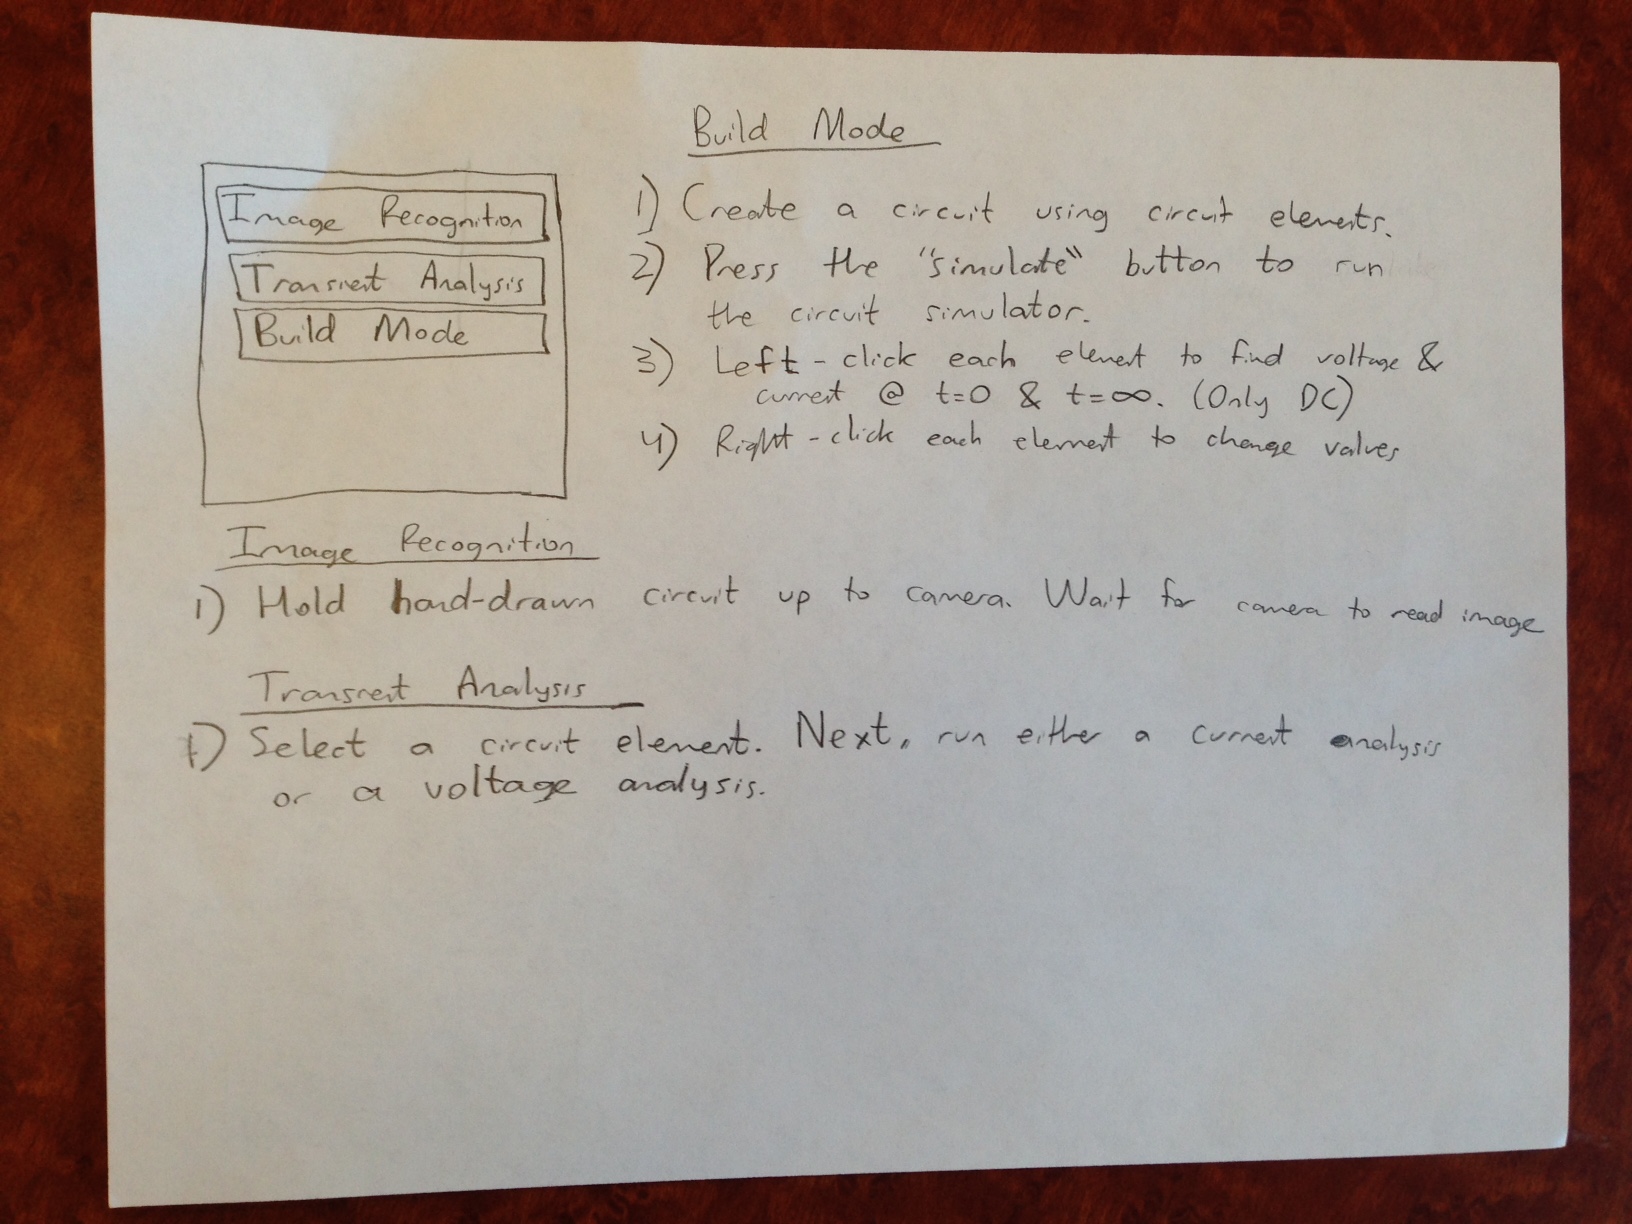 Image Recognition
Transient Analysis
Build Mode
Build Mode
1) Create a circuit using circuit elements.
2) Press the "simulate" button to run
the circuit simulator.
3) Left-click each element to find voltage &
current @ t=0 & t=∞. (Only DC)
4) Right-click each element to change values
Image Recognition
1) Hold hand-drawn circuit up to camera. Wait for camera to read image
Transient Analysis
1) Select a circuit element. Next, run either a current analysis
or a voltage analysis.